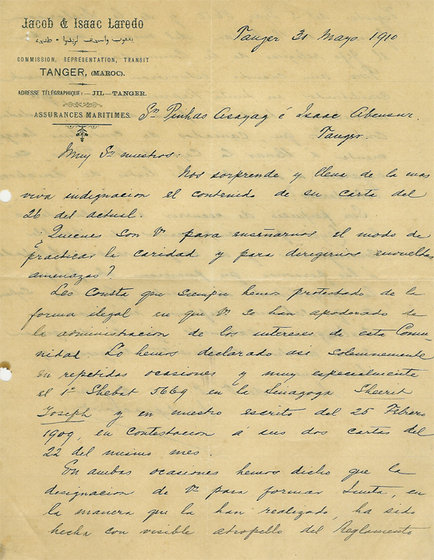 Jacob & Isaac Laredo
يعقوب واسحق لريدوا - طنجة
COMMISSION, REPRÉSENTATION, TRANSIT
TANGER, (MAROC).
ADRESSE TÉLÉGRAPHIQUE: — JIL — TANGER.
ASSURANCES MARITIMES.
Tanger 30 Mayo 1910
Srs Pinhas Asayag é Isaac Abensur.
Tanger.
Muy Srs nuestros:
Nos sorprende y llena de la mas
viva indignacion el contenido de su carta del
26 del actual.
Quienes son Vs para enseñarnos el modo de
practicar la caridad y para dirigirnos envueltas
amenazas?
Les Consta que siempre hemos protestado de la
forma ilegal en que Vs se han apoderado de
la administracion de los intereses de esta Comu-
nidad. Lo hemos declarado asi solemnemente
en repetidas ocasiones y muy especialmente
el 1º Shebat 5669 en la Sinagoga Sheerit
Joseph y en nuestro escrito del 25 Febrero
1909, en Contestacion á sus dos cartas del
22 del mismo mes.
En ambas ocasiones hemos dicho que la
designacion de Vs para formar Junta, en
la manera que la han realizado ha sido
hecha con visible atropello del Reglamento